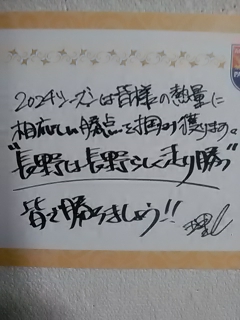 2024シーズンは皆様の熱量に
相応しい勝点を掴み獲ります。
"長野は長野らしく走り勝つ"
皆で勝ちましょう!!